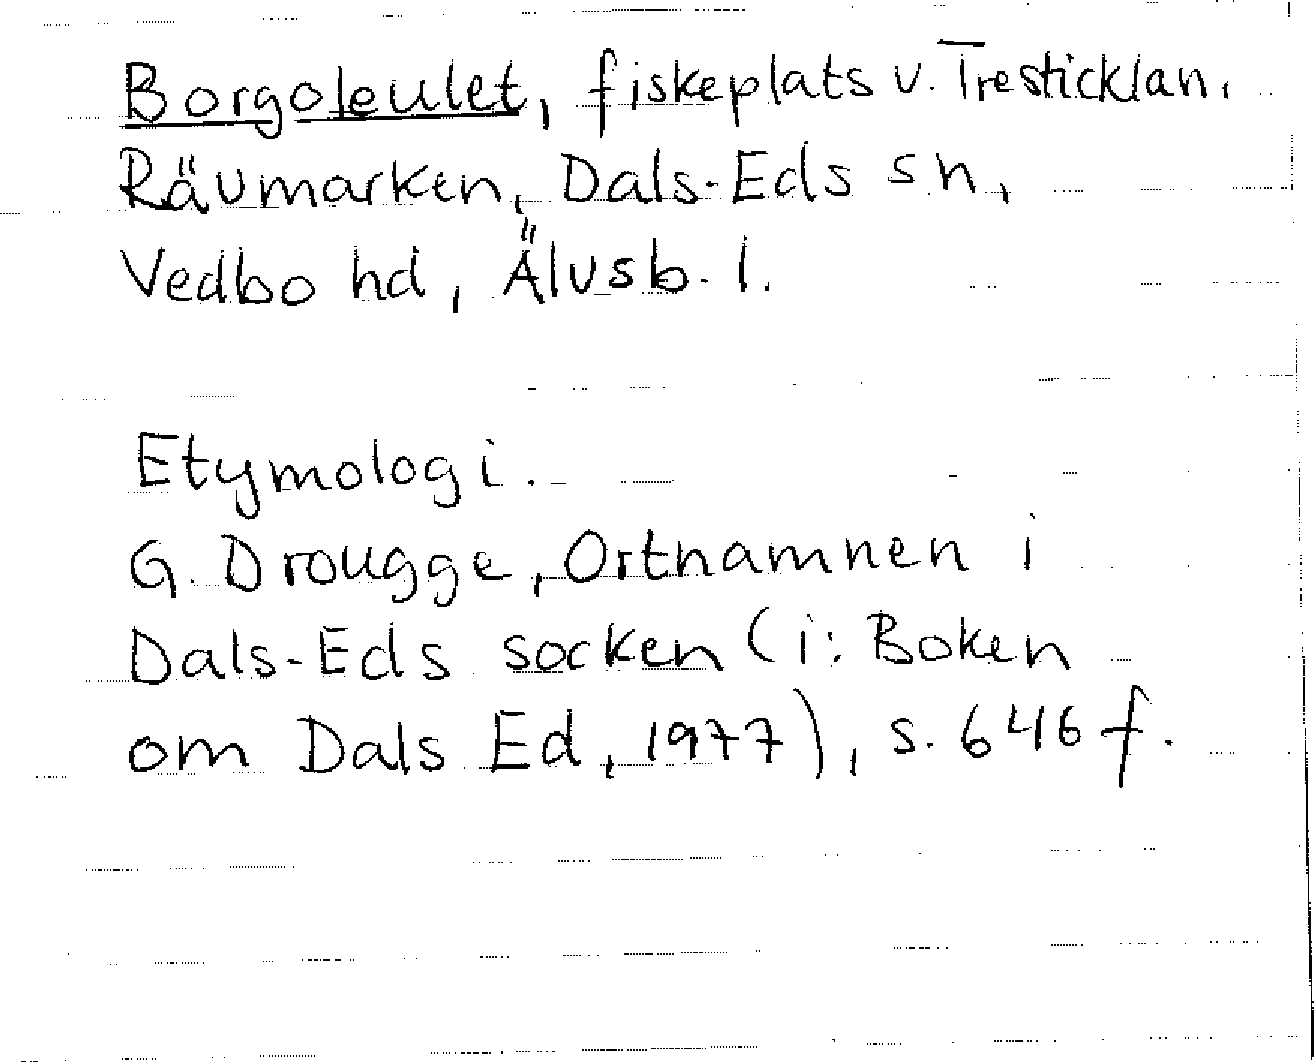 Borgoleulet, fiskeplats v. Tresticklan,
Rävmarken, Dals-Eds sn,
Vedbo hd, Älvsb. l.
Etymologi.
G. Drougge, Ortnamnen i
Dals-Eds socken (i: Boken
om Dals Ed, 1977), s. 646 f.